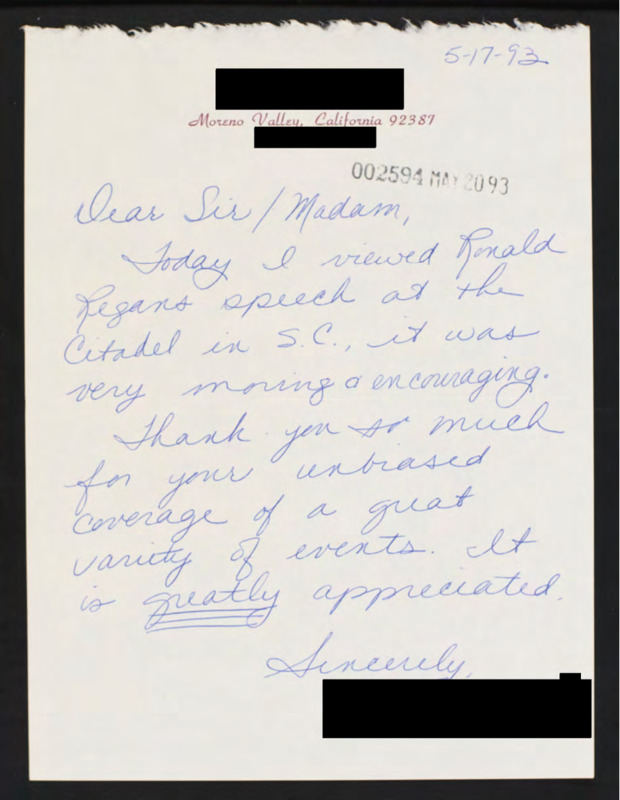 5-17-93
Moreno Valley, California 92387
002594 MAY 20 93
Dear Sir / Madam,
Today I viewed Ronald
Regans speech at the
Citadel in S.C., it was
very moving & encouraging.
Thank you so much
for your unbiased
coverage of a great
variety of events. It
is greatly appreciated.
Sincerely,